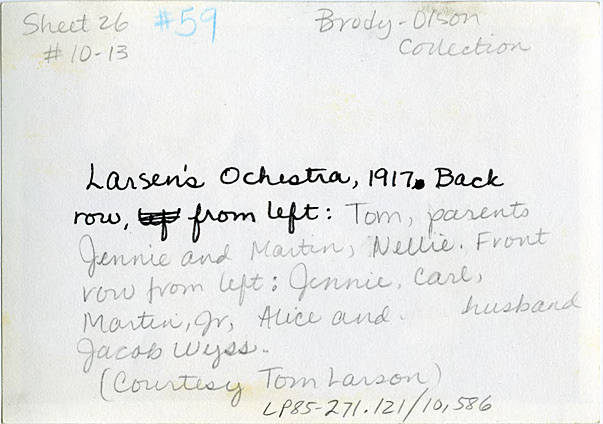 Sheet 26 #59 Brody-Olson
#10-13 Collection
Larsen's Ochestra, 1917. Back
row, from left: Tom, parents
Jennie and Martin, Nellie. Front
row from left: Jennie, Carl,
Martin, Jr, Alice and. husband
Jacob Wyss.
(Courtesy Tom Larson)
LP85-271.121/10,586